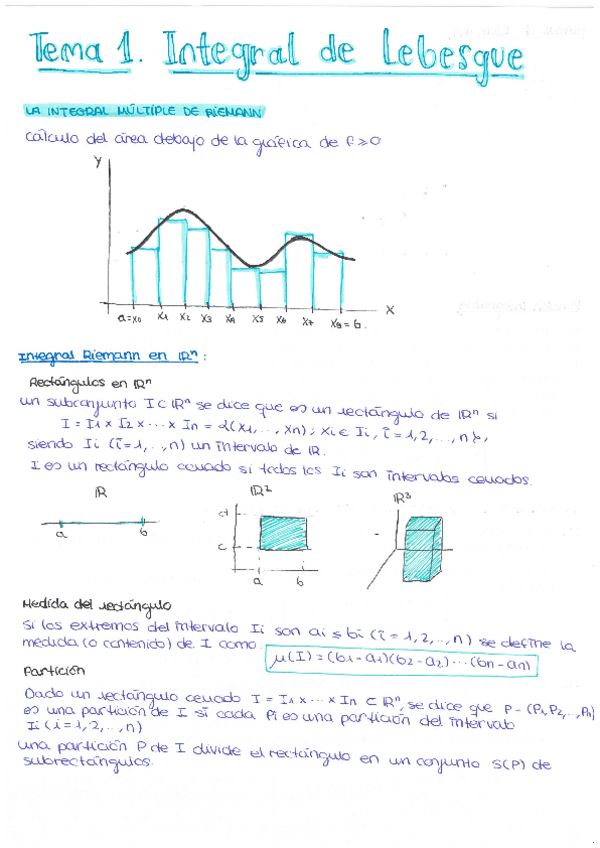 Tema 1. Integral de Lebesgue
LA INTEGRAL MÚLTIPLE DE RIEMANN
Cálculo del área debajo de la gráfica de f ≥ 0
y
x
a=x0 x1 x2 x3 x4 x5 x6 x7 x8 = b.
Integral Riemann en ℝⁿ:
Rectángulos en ℝⁿ
un subconjunto I ⊂ ℝⁿ se dice que es un rectángulo de ℝⁿ si
I = I1 x I2 x ··· x In = {(x1,..., xn); xi ∈ Ii, i = 1,2,...,n},
siendo Ii (i=1,..,n) un intervalo de ℝ.
I es un rectángulo cerrado si todos los Ii son intervalos cerrados.
ℝ ℝ² ℝ³
a b
d
c
a b
Medida del rectángulo
Si los extremos del intervalo Ii son ai ≤ bi (i = 1,2,..,n) se define la
medida (o contenido) de I como
μ(I) = (b1-a1)(b2-a2)···(bn-an)
Partición
Dado un rectángulo cerrado I = I1 x ··· x In ⊂ ℝⁿ, se dice que P = (P1,P2,..,Pn)
es una partición de I si cada Pi es una partición del intervalo
Ii (i=1,2,..,n)
una partición P de I divide el rectángulo en un conjunto S(P) de
subrectángulos.